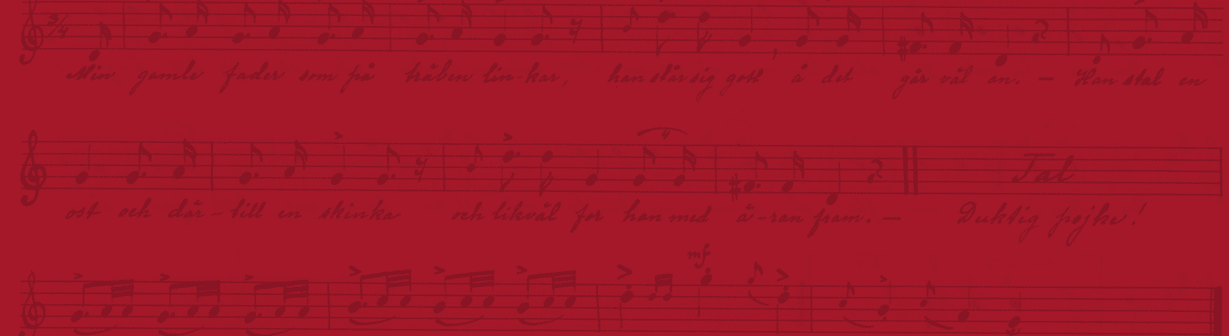 3/4
Min gamle fader som på träben lin-kar, han slår sig gott å det går väl an. — Han stal en
4
ost och där-till en skinka och likväl for han med ä-ran fram. — Duktig pojke!
Tal
mf